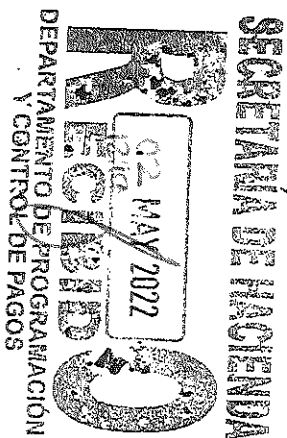 SECRETARÍA DE HACIENDA
RECIBIDO
02 MAY 2022
DEPARTAMENTO DE PROGRAMACIÓN
Y CONTROL DE PAGOS